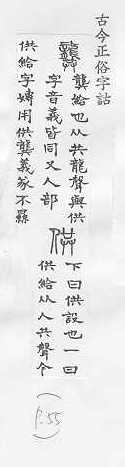 古今正俗字詁
龔
龔給也从共龍聲與供
字音義皆同又人部
供
下曰供設也一曰
供給从人共聲今
供給字嫥用供龔義㒸不㬎
(P.55)